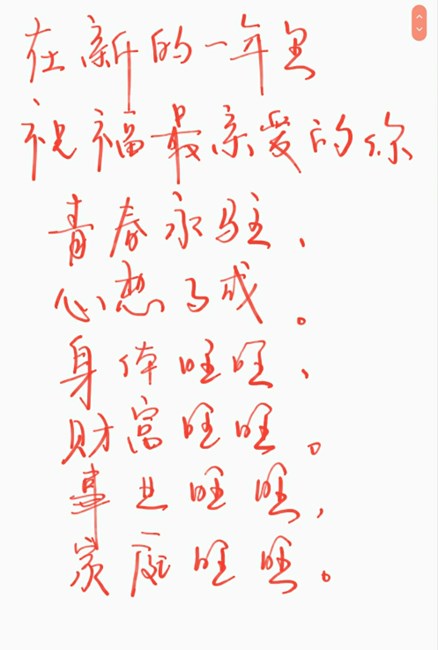 在新的一年里
祝福最亲爱的你
青春永驻、
心想事成。
身体旺旺、
财富旺旺。
事业旺旺,
家庭旺旺。